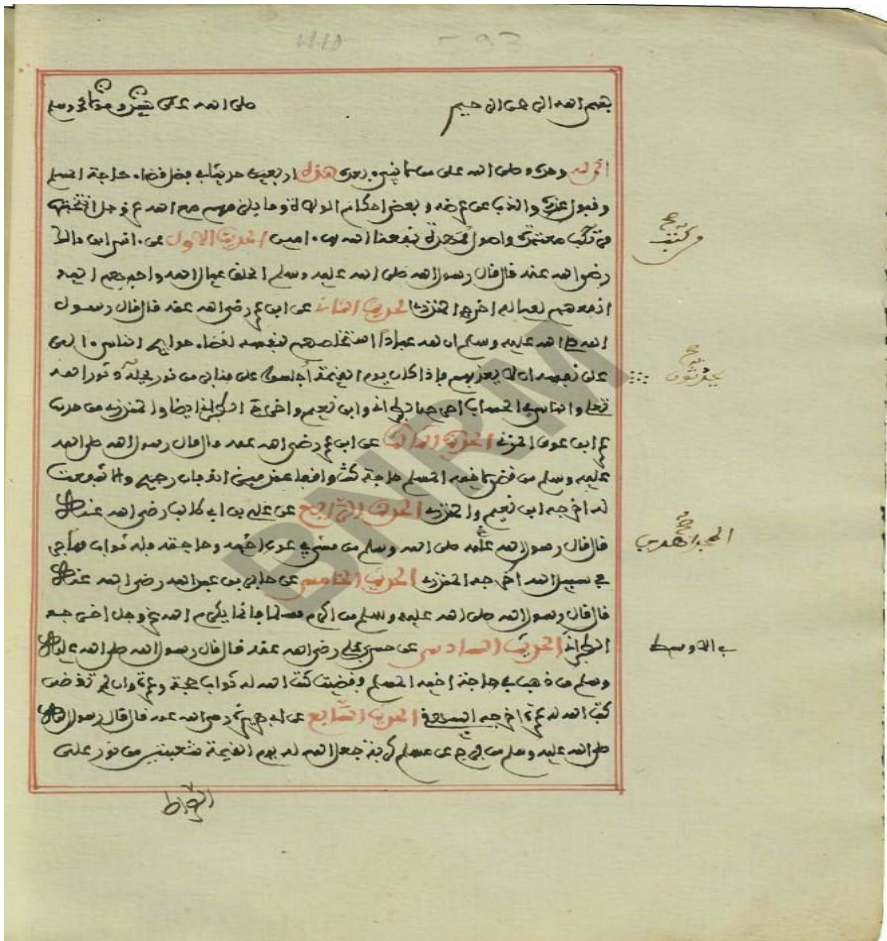 بسم الله الرحمن الرحيم صلى الله على سيدنا ومولانا محمد وسلم
الحمد لله وحده وصلى الله على من لا نبي بعده هذه اربعين حديثا في فضل قضاء حاجة المسلم
وقبول عذره والذب عن عرضه وبعض احكام الولاة وما يلي مهم مع الله عز وجل
من كتب معتمدة واصول نفعنا الله بها امين الحديث الاول عن انس ابن مالك
رضي الله عنه قال قال رسول الله صلى الله عليه وسلم الخلق عيال الله واحبهم اليه
انفعهم لعياله اخرجه المنذري الحديث الثاني عن ابن عمر رضي الله عنه قال قال رسول
الله صلى الله عليه وسلم ان لله عبادا استخلصهم لنفسه لقضاء حوائج الناس الى
على نفسه ان لا يعذبهم فاذا كان يوم القيمة اجلسوا على منابر من نور يحدثون الله
تعلى والناس في الحساب اخرجه الطبراني وابن نعيم واخرجه الطبراني ايضا والمنذري من حديث
عمر ابن عوف المزني الحديث الثالث عن ابن عمر رضي الله عنه قال قال رسول الله صلى الله
عليه وسلم من قضى لاخيه المسلم حاجة كنت واقفا عند ميزانه فان رجح والا شفعت
له اخرجه ابن نعيم والمنذري الحديث الرابع عن علي بن ابي طالب رضي الله عنه
قال قال رسول الله صلى الله عليه وسلم من مشى في عون اخيه وحاجته فله ثواب
في سبيل الله اخرجه المنذري الحديث الخامس عن جابر بن عبد الله رضي الله عنه
قال قال رسول الله صلى الله عليه وسلم من اكرم مسلما فانما يكرم الله عز وجل اخرجه
الطبراني الحديث السادس عن حسن بن علي رضي الله عنه قال قال رسول الله صلى الله عليه
وسلم من ذهب في حاجة اخيه المسلم فقضيت كتب الله له ثواب حجة وعمرة وان لم تقضى
كتب الله له عمرة اخرجه البيهقي الحديث السابع عن ابي هريرة رضي الله عنه قال قال رسول الله
صلى الله عليه وسلم من فرج عن مسلم كربة جعل الله له يوم القيمة شعبتين من نور على
الصراط
من كتب
يحدثون
المجاهدين
في الاوسط
BNRM